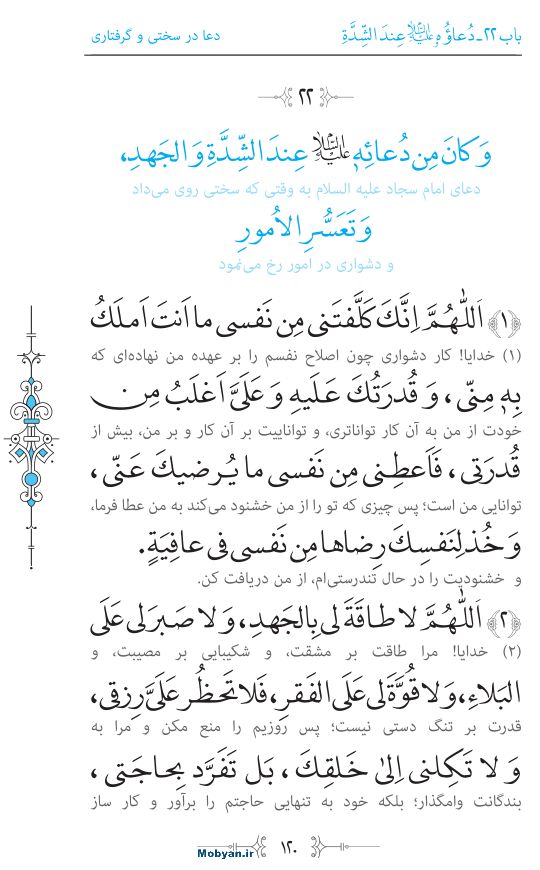 باب ۲۲ـ دُعاؤُهُ علیه السلام عِندَ الشِّدَّةِ
دعا در سختی و گرفتاری
۲۲
وَ کانَ مِن دُعائِهِ علیه السلام عِندَ الشِّدَّةِ وَ الجَهدِ،
دعای امام سجاد علیه السلام به وقتی که سختی روی می‌داد
وَ تَعَسُّرِ الاُمورِ
و دشواری در امور رخ می‌نمود
﴿۱﴾ اَللّٰهُمَّ اِنَّكَ كَلَّفتَنی مِن نَفسی ما اَنتَ اَملَكُ
(۱) خدایا! کار دشواری چون اصلاح نفسم را بر عهده من نهاده‌ای که
بِهِ مِنّی ، وَ قُدرَتُكَ عَلَیهِ وَ عَلَیَّ اَغلَبُ مِن
خودت از من به آن کار تواناتری، و تواناییت بر آن کار و بر من، بیش از
قُدرَتی ، فَاَعطِنی مِن نَفسی ما یُرضیكَ عَنّی ،
توانایی من است؛ پس چیزی که تو را از من خشنود می‌کند به من عطا فرما،
وَ خُذ لِنَفسِكَ رِضاها مِن نَفسی فی عافِیَةٍ.
و خشنودیت را در حال تندرستی‌ام، از من دریافت کن.
﴿۲﴾ اَللّٰهُمَّ لا طاقَةَ لی بِالجَهدِ، وَ لا صَبرَ لی عَلَی
(۲) خدایا! مرا طاقت بر مشقت، و شکیبایی بر مصیبت، و
البَلاءِ، وَ لا قُوَّةَ لی عَلَی الفَقرِ، فَلا تَحظُر عَلَیَّ رِزقی،
قدرت بر تنگ دستی نیست؛ پس روزیم را منع مکن و مرا به
وَ لا تَكِلنی اِلیٰ خَلقِكَ ، بَل تَفَرَّد بِحاجَتی ،
بندگانت وامگذار؛ بلکه خود به تنهایی حاجتم را برآور و کار ساز
۱۲۰
Mobyan.ir